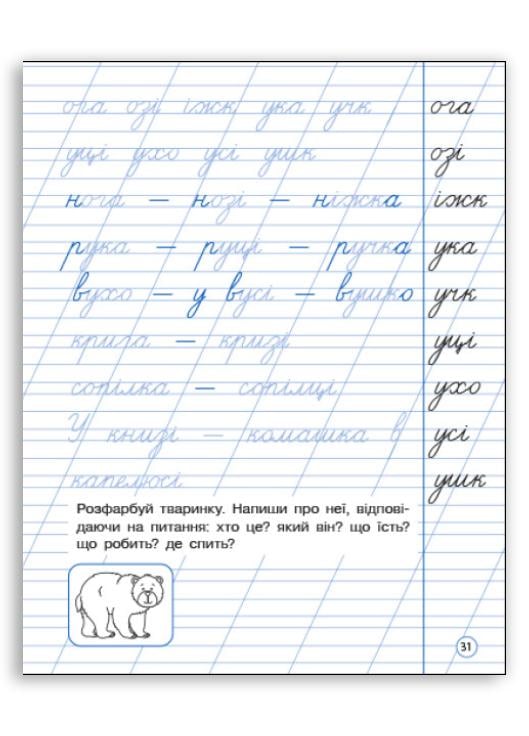 ога озі іжк ука учк ога
уці ухо усі ушк озі
нога — нозі — ніжка іжк
рука — руці — ручка ука
вухо — у вусі — вушко учк
крига — кризі уці
сопілка — сопілці ухо
У книзі — комашка в усі
капелюсі ушк
Розфарбуй тваринку. Напиши про неї, відпові-
даючи на питання: хто це? який він? що їсть?
що робить? де спить?
31